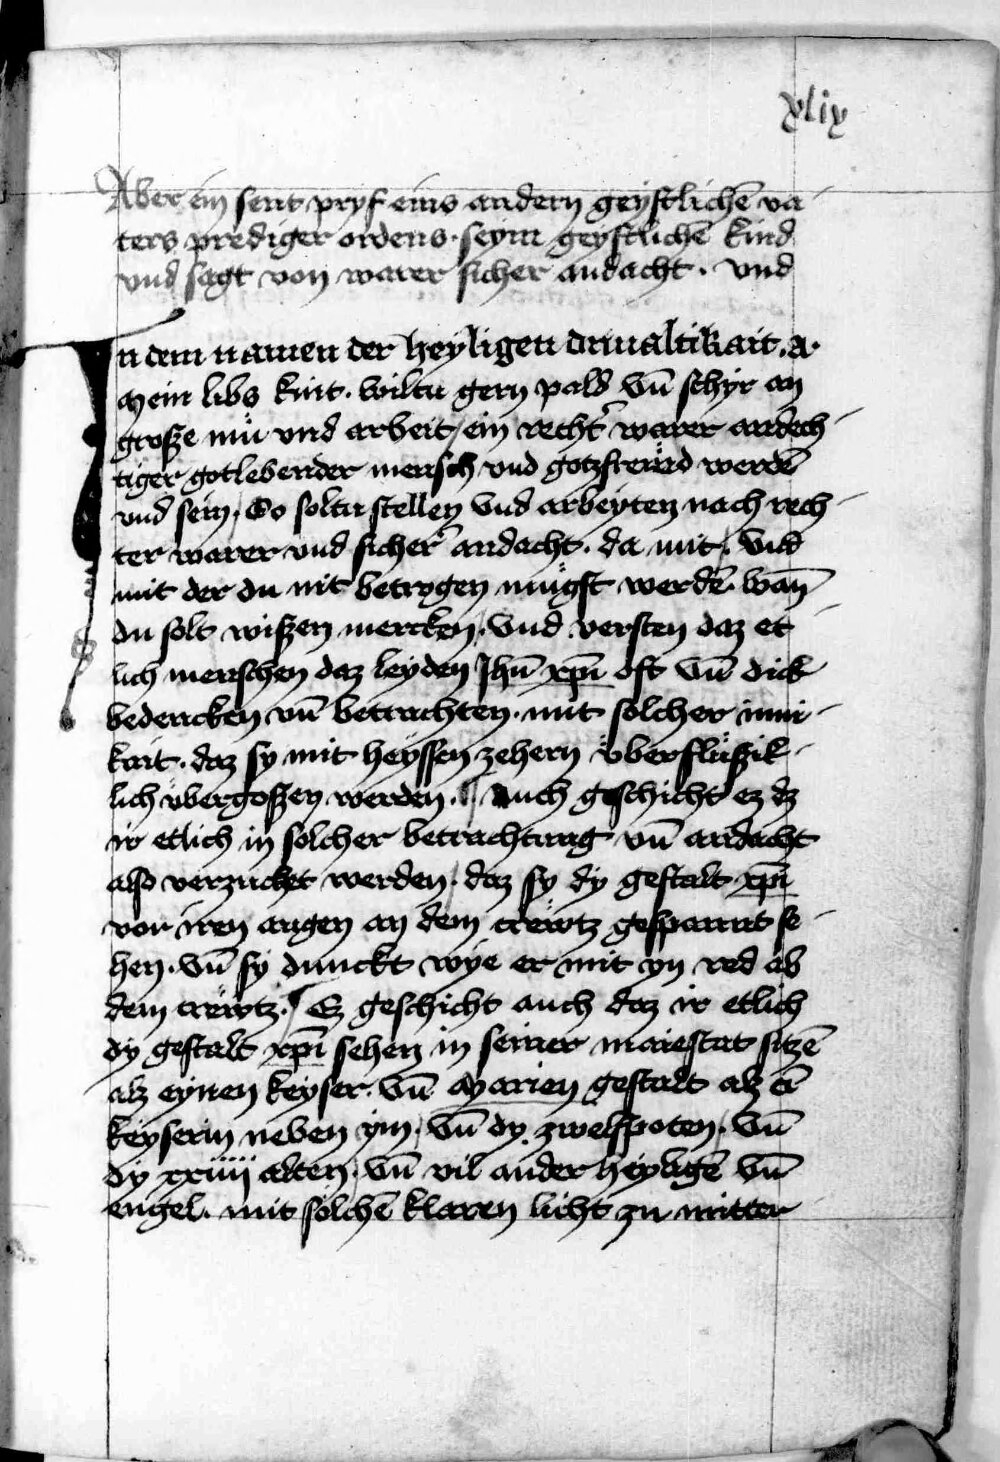 xlix
Aber ein sent pryf eins andern geystlichē va-
ters prediger ordens. seym geystlichē kind
vnd sagt von warer sicher andacht. vnd
In dem namen der heyligen driualtikait. A.
Mein libs kint. wiltu gern pald vn̄ schyr an
große mü vnd arbeit / ein recht̕ warer andech-
tiger gotlebender mensch vnd gotzfreüd werdē
vnd sein / So soltu stellen vnd arbeyten nach rech-
ter warer vnd sicher̕ andacht. da mit / vnd
mit der du nit betrogen mügst werdē. wān
du solt wißen mercken / vnd versten daz et-
lich menschen daz leyden Jhū xp̄i oft vn̄ dick
bedencken vn̄ betrachten. mit solcher inni-
kait. daz sy mit heyssen zehern überflüßik-
lich übergoßen werden. Auch geschicht ez dz
ir etlich in solcher betrachtung vn̄ andacht
also verzucket werden / daz sy dy gestalt xp̄i
vor iren augen an dem creütz gespannt se-
hen. vn̄ sy dunckt wye er mit yn red ab
dem creütz. / Ez geschicht auch daz ir etlich
dy gestalt xp̄i sehen in seiner maiestat sitzē
alz eynen keyser. vn̄ Marien gestalt alz ei̅
keyserin neben ym / vn̄ dy zwelfpoten / vn̄
dy xxiiii alten / vn̄ vil ander heyligē vn̄
engel. mit solchē klaren licht zu mitter